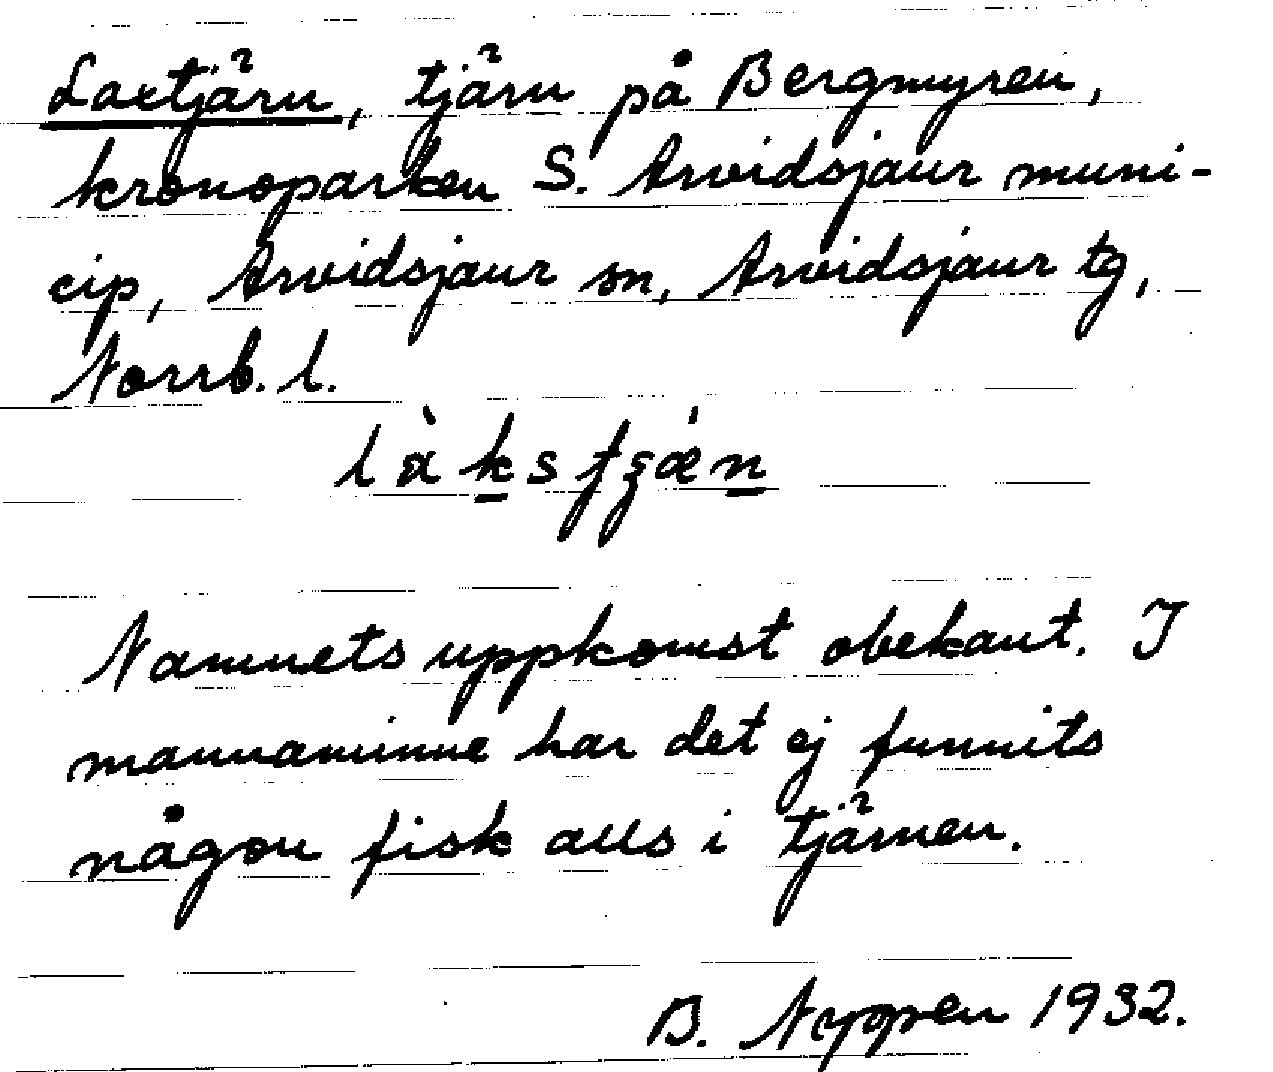 Laxtjärn, tjärn på Bergmyren,
kronoparken S. Arvidsjaur muni-
cip, Arvidsjaur sn, Arvidsjaur tg,
Norrb. l.
Namnets uppkomst obekant. I
mannaminne har det ej funnits
någon fisk alls i tjärnen.
B. Nyppen 1932.